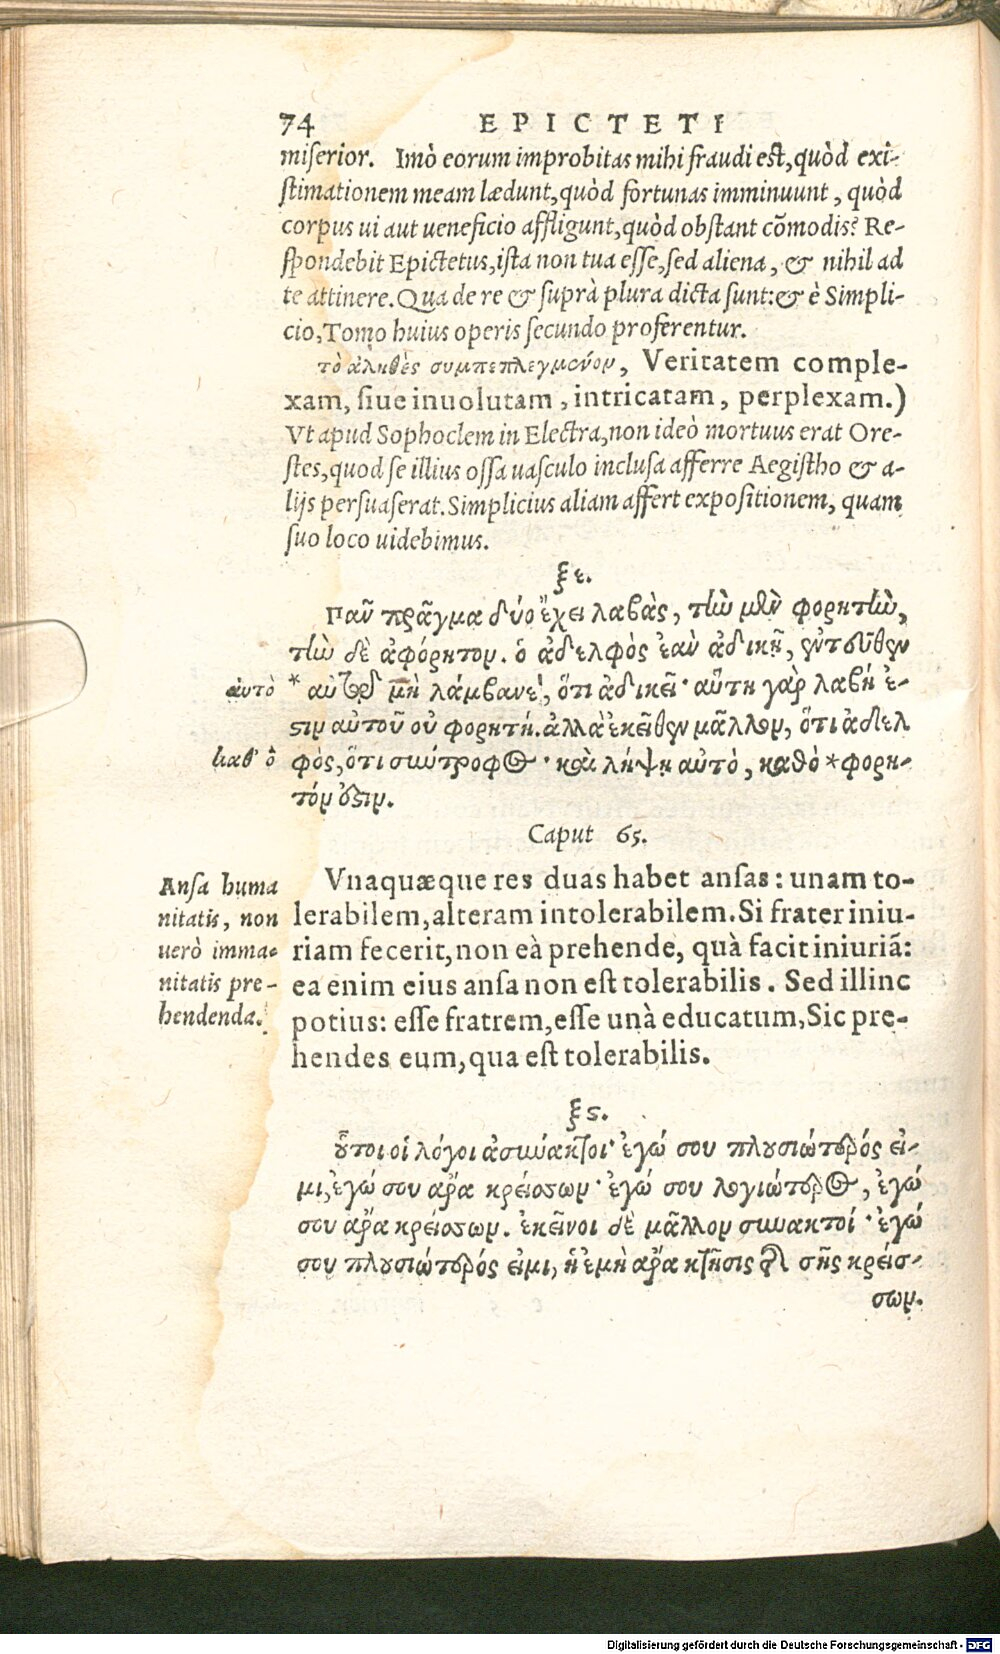 74 EPICTETI
miserior. Imò eorum improbitas mihi fraudi est, quòd exi-
stimationem meam lædunt, quòd fortunas imminuunt, quòd
corpus ui aut ueneficio affligunt, quòd obstant cõmodis? Re-
spondebit Epictetus, ista non tua esse, sed aliena, & nihil ad
te attinere. Qua de re & suprà plura dicta sunt: & è Simpli-
cio, Tomo huius operis secundo proferentur.
τὸ ἀληθὲς συμπεπλεγμένον, Veritatem comple-
xam, siue inuolutam, intricatam, perplexam.)
Vt apud Sophoclem in Electra, non ideò mortuus erat Ore-
stes, quod se illius ossa uasculo inclusa afferre Aegistho & a-
lijs persuaserat. Simplicius aliam affert expositionem, quam
suo loco uidebimus.
ξε.
Πᾶν πρᾶγμα δύο ἔχει λαβὰς, τὴν μὲν φορητὴν,
τὴν δὲ ἀφόρητον. ὁ ἀδελφὸς ἐὰν ἀδικῇ, ἐντεῦθεν
αὐτὸ
* αὐτὸν μὴ λάμβανε, ὅτι ἀδικεῖ· αὕτη γὰρ λαβή ἐ-
στιν αὐτοῦ οὐ φορητή. ἀλλὰ ἐκεῖθεν μᾶλλον, ὅτι ἀδελ
καθ' ὃ
φὸς, ὅτι σύντροφος· καὶ λήψῃ αὐτὸ, καθὸ * φορη-
τόν ἐστιν.
Caput 65.
Ansa huma
nitatis, non
uerò imma-
nitatis pre-
hendenda.
Vnaquæque res duas habet ansas: unam to-
lerabilem, alteram intolerabilem. Si frater iniu-
riam fecerit, non eà prehende, quà facit iniuriã:
ea enim eius ansa non est tolerabilis. Sed illinc
potius: esse fratrem, esse unà educatum, Sic pre-
hendes eum, qua est tolerabilis.
ξς.
οὗτοι οἱ λόγοι ἀσύνακτοι· ἐγώ σου πλουσιώτερός εἰ-
μι, ἐγώ σου ἄρα κρείσσων· ἐγώ σου λογιώτερος, ἐγώ
σου ἄρα κρείσσων. ἐκεῖνοι δὲ μᾶλλον συνακτοί· ἐγώ
σου πλουσιώτερός εἰμι, ἡ ἐμὴ ἄρα κτῆσις τῆς σῆς κρείσ-
σων.
Digitalisierung gefördert durch die Deutsche Forschungsgemeinschaft - DFG